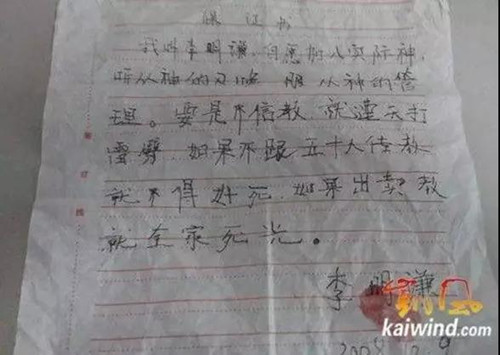 保证书
我叫李明谦,自愿加入实际神,
听从神的 服从神的管
理。要是不信教,就遭天打
雷劈,如果不跟五十人传教
就不得好死,如果出卖教
就全家死光。
李明谦
凯风
kaiwind.com